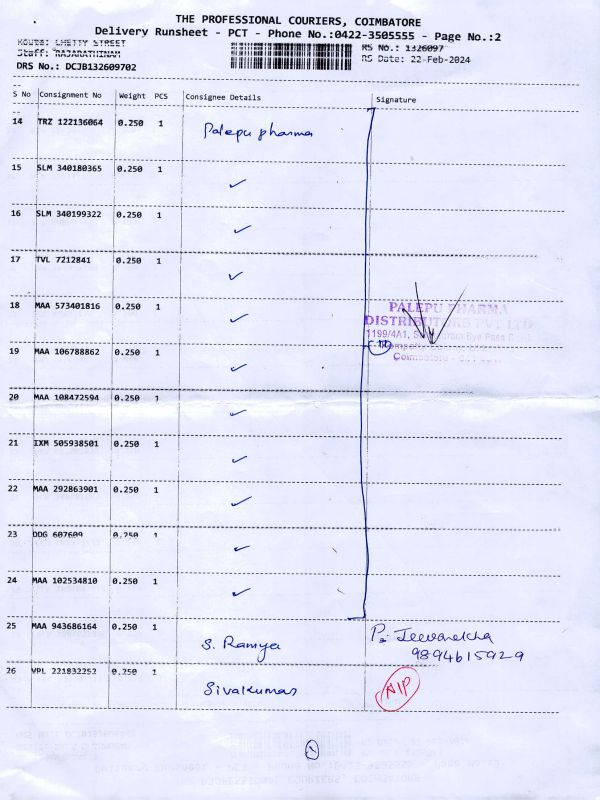 THE PROFESSIONAL COURIERS, COIMBATORE
Delivery Runsheet - PCT - Phone No.:0422-3505555 - Page No.:2
Route: CHETTY STREET RS No.: 1326097
Staff: RAJARATHINAM RS Date: 22-Feb-2024
DRS No.: DCJB132609702
S No Consignment No Weight PCS Consignee Details Signature
14 TRZ 122136064 0.250 1 Palepu pharma
15 SLM 340180365 0.250 1 ✓
16 SLM 340199322 0.250 1 ✓
17 TVL 7212841 0.250 1 ✓
18 MAA 573401816 0.250 1 ✓
PALEPU PHARMA
DISTRIBUTORS PVT LTD
1199/4A1,
19 MAA 106788862 0.250 1 ✓
Coimbatore -
20 MAA 108472594 0.250 1 ✓
21 IXM 505938501 0.250 1 ✓
22 MAA 292863901 0.250 1 ✓
23 DDG 607609 0.250 1 ✓
24 MAA 102534810 0.250 1 ✓
25 MAA 943686164 0.250 1 S. Ramya P. Jeevarekha
9894615929
26 VPL 221832252 0.250 1 Sivakumar AIP